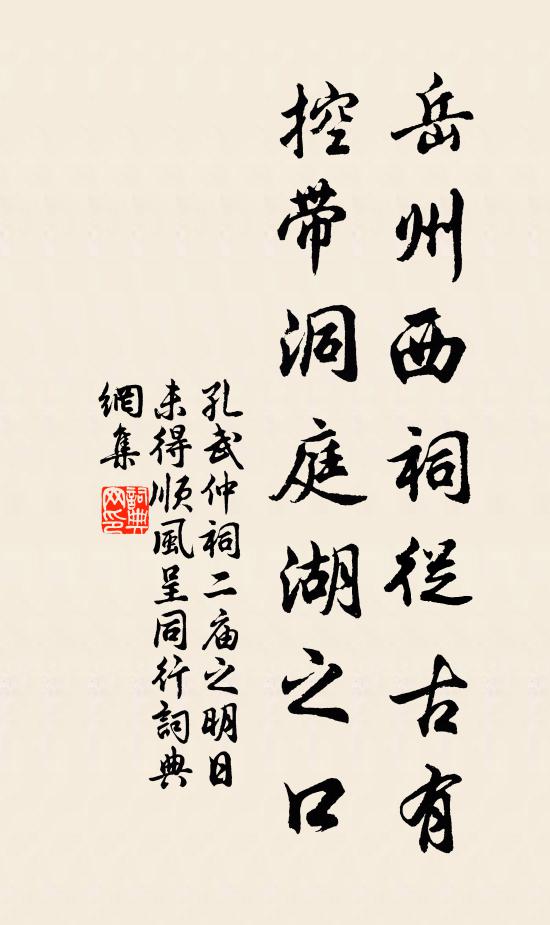 岳州西祠從古有
控带洞庭湖之口
孔武仲祠二庙之明日
未得顺風呈同行詞典
網集
詞典
网印